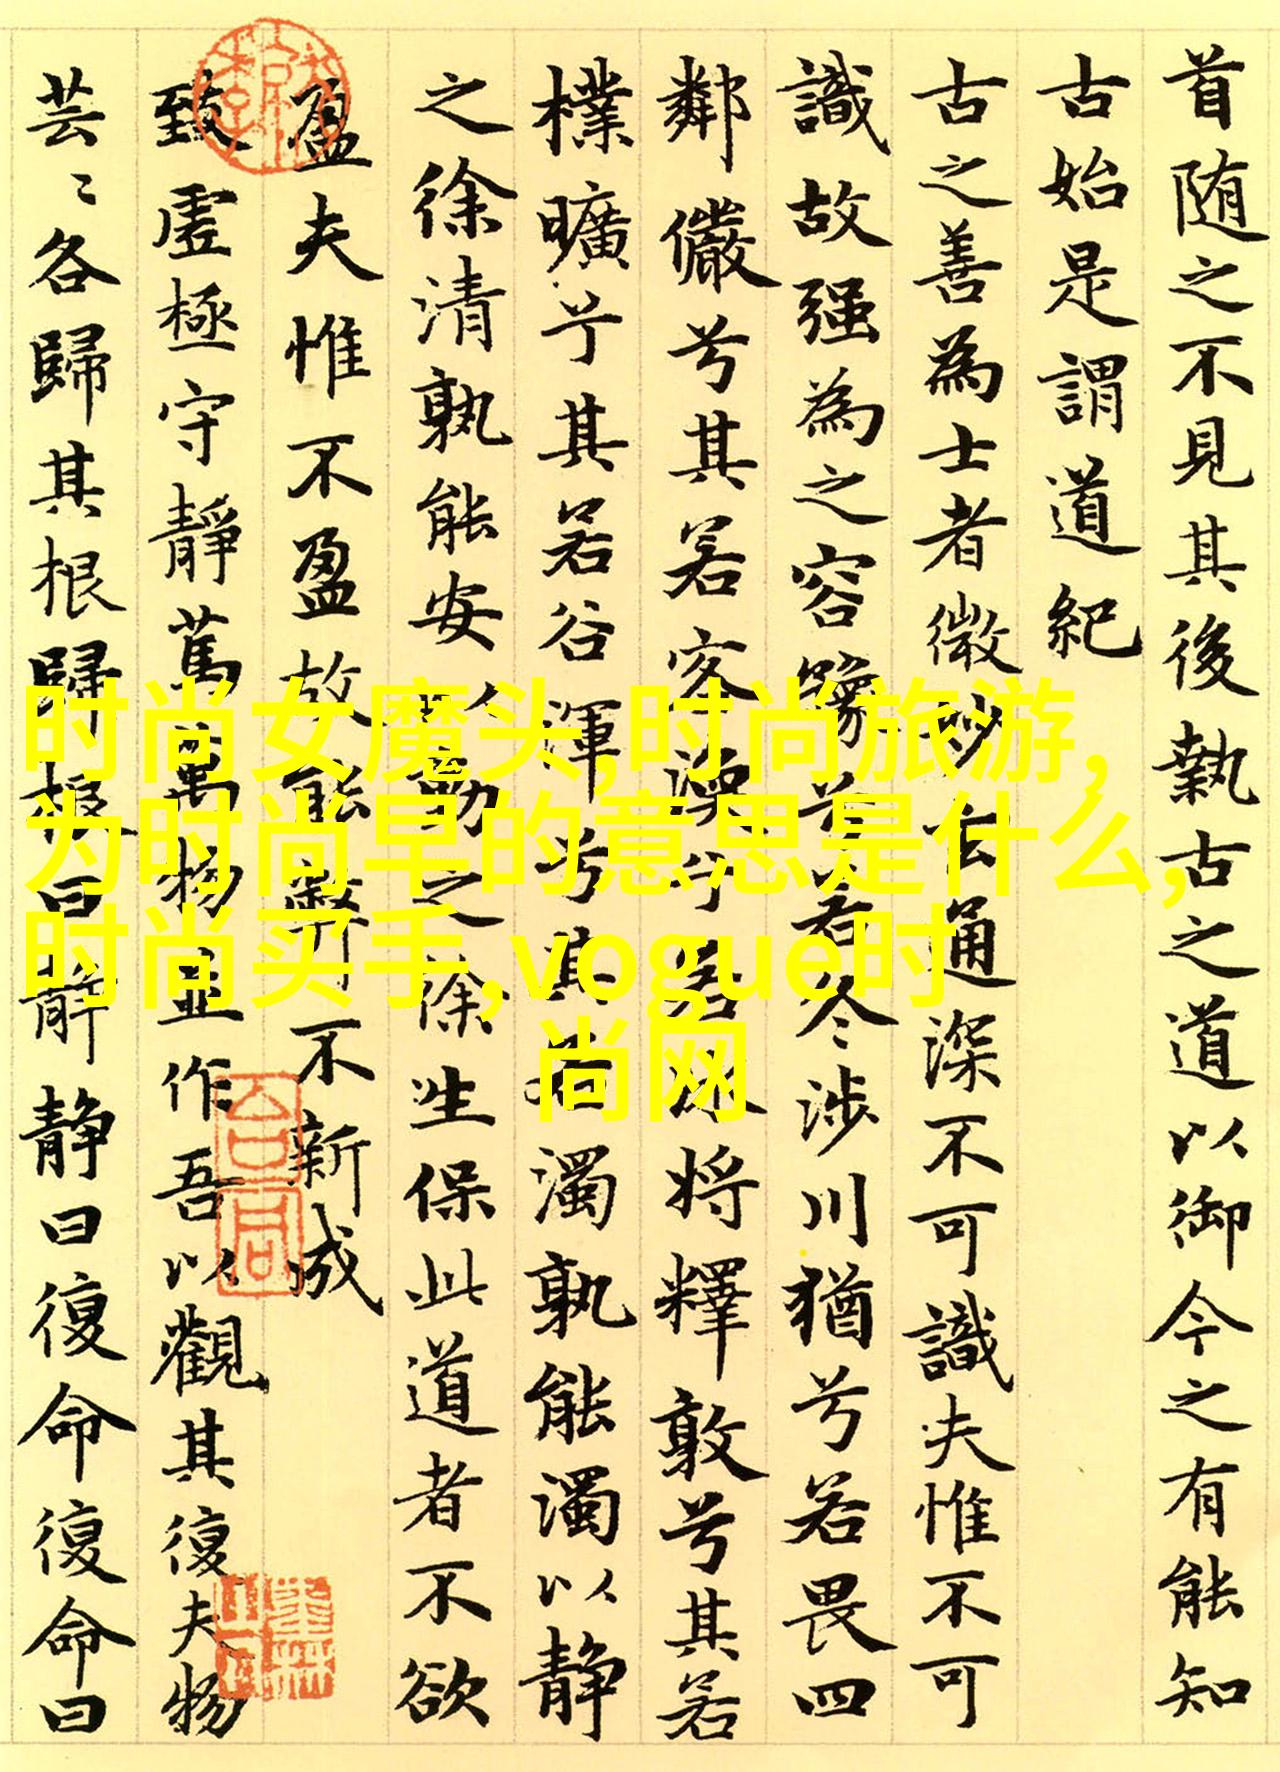 首随之不見其後執古之道以御今之有能知
古始是謂道紀
古之善為士者微妙玄通深不可識夫惟不可
識故强為之容豫兮若冬涉川猶兮若畏四
鄰儼兮其若客渙兮若冰将釋敦兮其若
樸曠兮其若谷渾兮其若濁孰能濁以静
之徐清孰能安以動之徐生保此道者不欲
盈夫惟不盈故能弊不新成
致虛極守靜萬萬物並作吾以觀其復夫物
芸〻各歸其根歸根曰静静曰復命復命曰
时尚女魔头,时尚旅游,
为时尚早的意思是什么,
时尚买手,vogue时
尚网